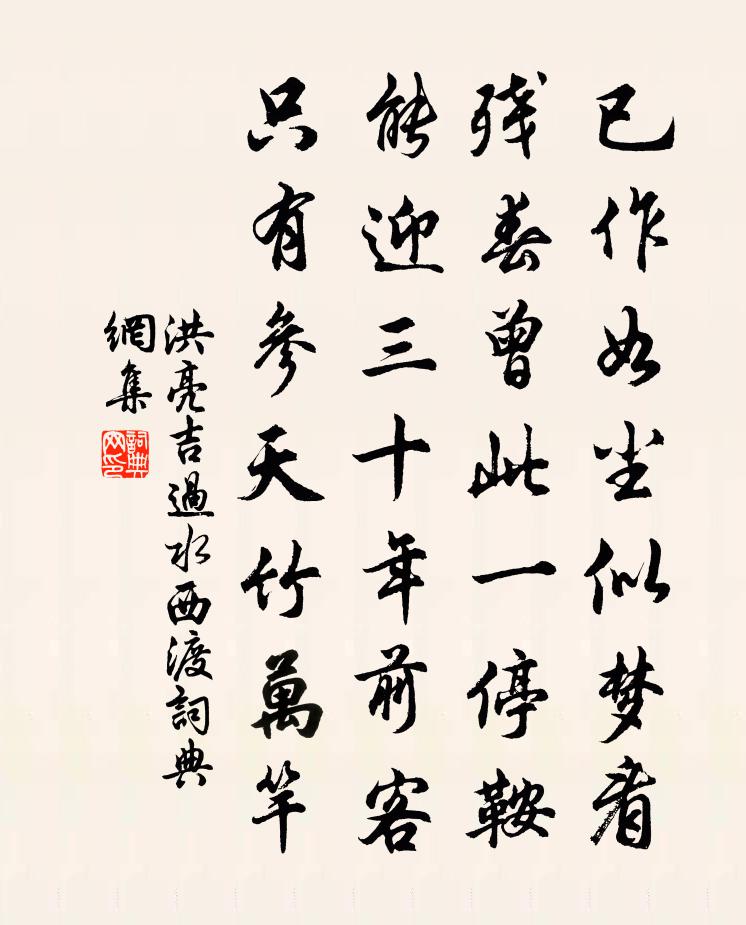 已作如尘似梦看
残春曾此一停鞍
能迎三十年前客
只有参天竹萬竿
洪亮吉過水西渡詞典
網集
詞典网印